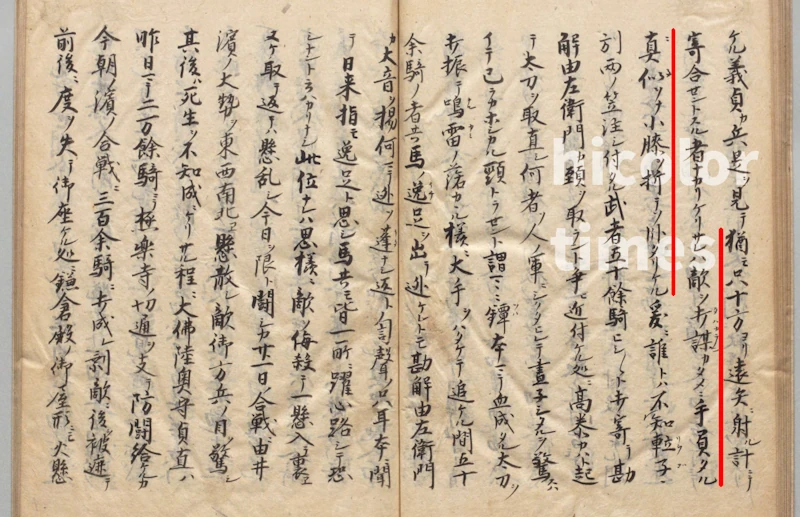 ケル義貞カ兵是ヲ見テ猶モ只八十方ヨリ遠矢ニ射ル計ニテ
寄合セントスル者ナカリケリサレハ敵ヲ打謀カタメニ手負タル
真似ヲメ小膝ヲ折テソ臥タリケル爰ニ誰トハ不知輪子ニ
引両ノ笠注シ付タル武者五十餘騎ヒシ〱ト打寄テ勘
解由左衛門カ頸ヲ取ラント争ヒ近付ケル処ニ高重カハト起
テ太刀ヲ取直シ何者ソ人ノ軍ニシクタヒレテ晝子シタルヲ驚スハ
イテ己等カホシカル頸トラセント謂マヽニ鐔本マテ血成タル太刀ヲ
打振テ鳴雷ノ落カヽル様ニ大手ヲハタケテ追ケル間五十
余騎ノ者共馬ノ逸足ヲ出テ逃ケルトモ勘解由左衛門
カ大音ヲ揚何マテ逃ソ蓬シ返セト訇聲ノ只耳本ニ聞
テ日来指モ逸足ト思シ馬共モ皆一所ニ躍心路シテ恐シ
ナント云ハカリナシ此位ナラハ思様ニ敵ヲ侮殺テ一懸入テ裏
ヌケ取テ返テハ懸乱シ今日ヲ限ト闘シカ廿一日ノ合戦ニ由井
濱ノ大勢ヲ東西南北ヘ懸散シ敵御方ノ兵ノ目ヲ驚シ
其後ハ死生ヲ不知成ニケリサル程ニ大佛陸奥守貞直ハ
昨日マテ二万餘騎ニテ極楽寺ノ切通ヲ支テ防闘給ケルカ
今朝ノ濱ノ合戦ニ三百余騎ニ打成レ剰敵ニ後ヲ被遮テ
前後ニ度ヲ失テ御座ケル処ニ鎌倉殿ノ御屋形ニモ火懸
hicolor
times